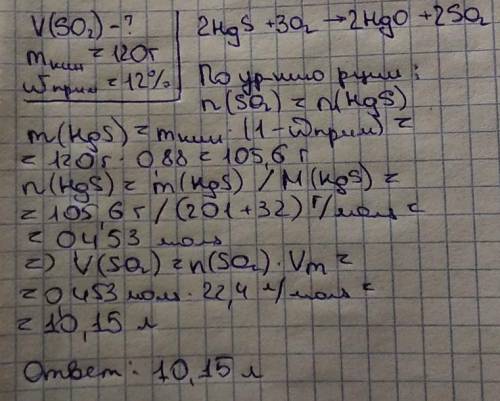 V(SO₂) - ?
mкин = 120г
ωприм = 12%
2HgS + 3O₂ → 2HgO + 2SO₂
По ур-нию р-ции:
n(SO₂) = n(HgS)
m(HgS) = mкин · (1 - ωприм) =
= 120г · 0,88 = 105,6 г
n(HgS) = m(HgS) / M(HgS) =
= 105,6 г / (201 + 32) г/моль =
= 0,453 моль
=> V(SO₂) = n(SO₂) · Vm =
= 0,453 моль · 22,4 л/моль =
= 10,15 л
Ответ: 10,15 л